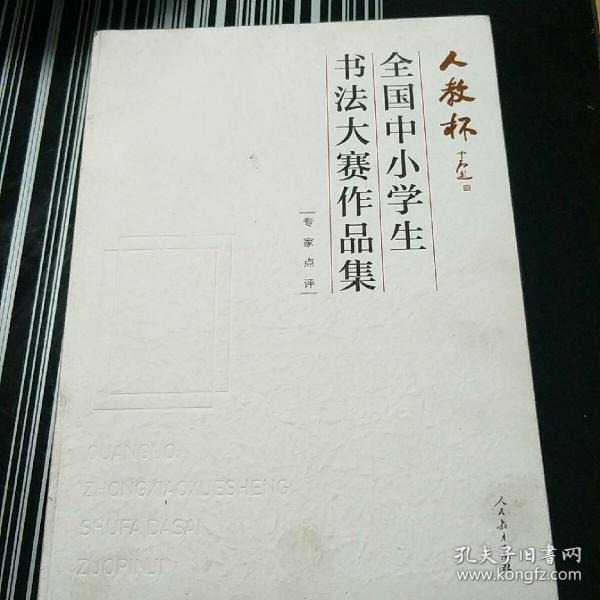 人教杯
全国中小学生
书法大赛作品集
专家点评
QUANGUO
ZHONGXIAOXUESHENG
SHUFA DASAI
ZUOPINJI
人民教育出版社
孔夫子旧书网
www.kongfz.com